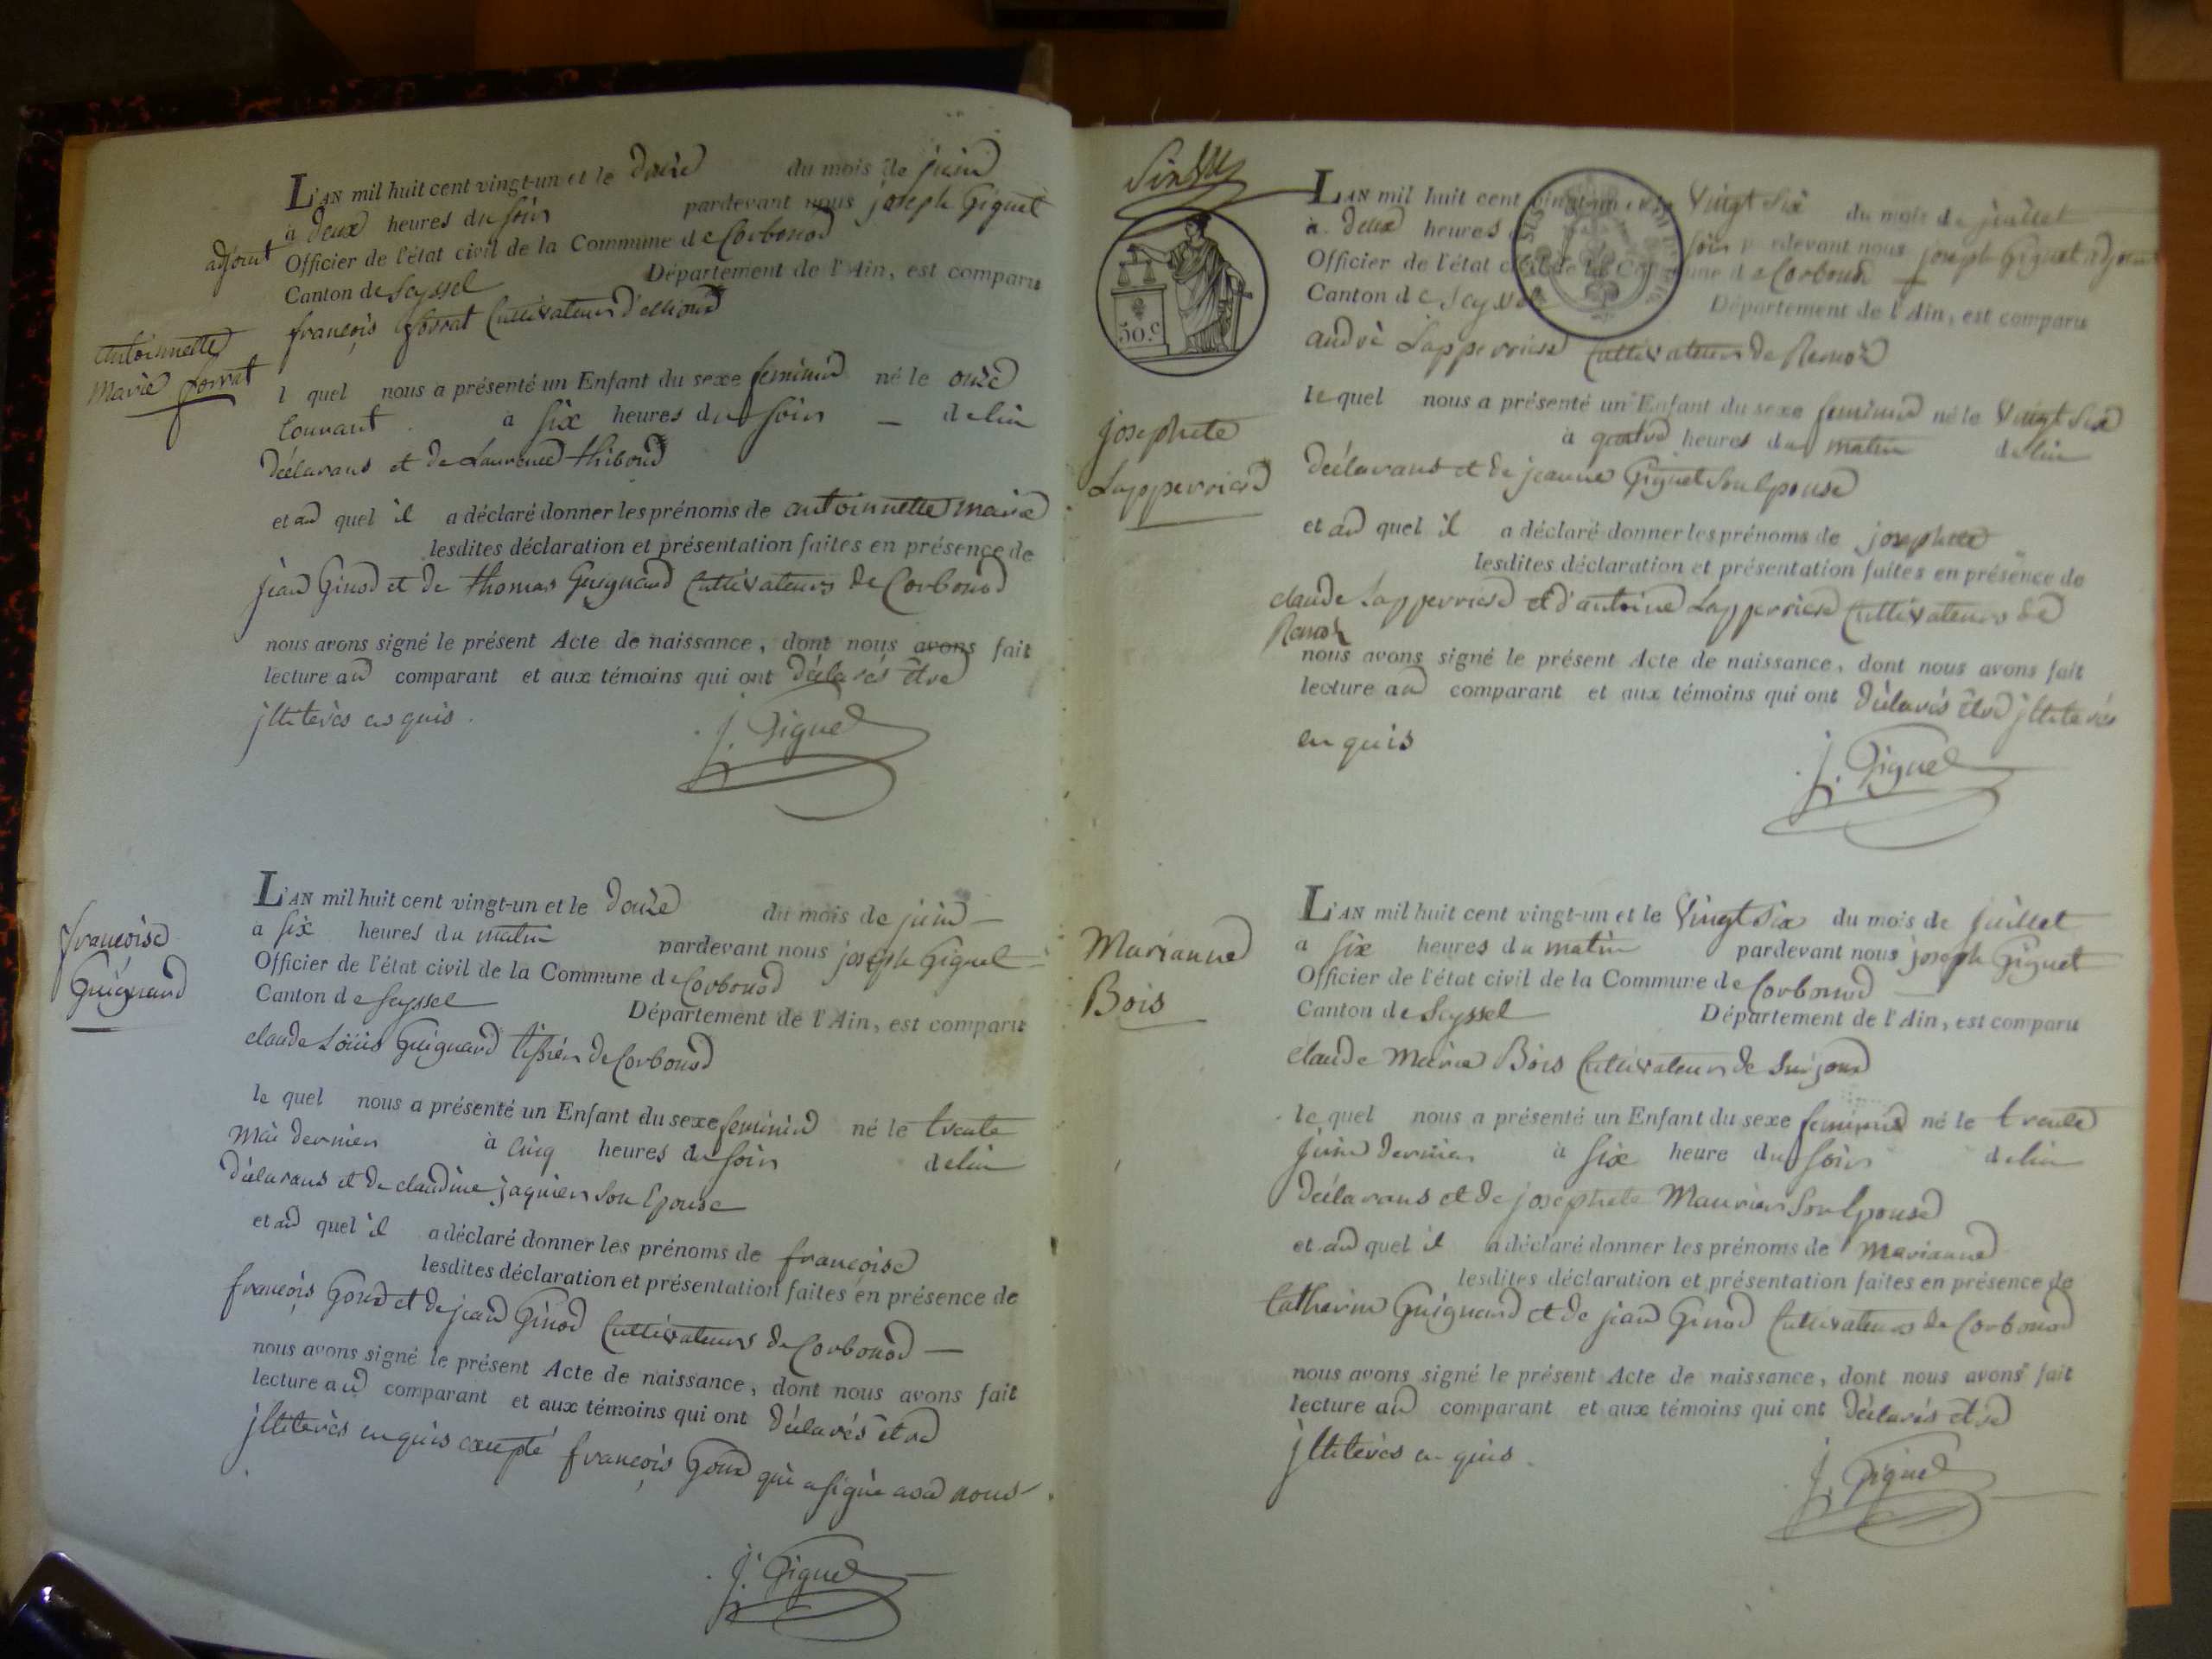 L'AN mil huit cent vingt-un et le douze du mois de juin
à deux heures du soir pardevant nous joseph Giguet
adjoint
Officier de l'état civil de la Commune de Corbonod
Canton de Seyssel Département de l'Ain, est comparu
françois forrat Cultivateur
Antoinette
Marie forrat
l quel nous a présenté un Enfant du sexe feminin né le onze
Courant à six heures du soir — de lui
déclarans et de Laurence thiboud
et au quel il a déclaré donner les prénoms de antoinette marie
lesdites déclaration et présentation faites en présence de
jean Ginod et de thomas Guignard Cultivateurs de Corbonod
nous avons signé le présent Acte de naissance, dont nous avons fait
lecture au comparant et aux témoins qui ont déclarés être
jlliterés en quis.
J. Giguet
L'AN mil huit cent vingt-un et le douze du mois de juin —
a six heures du matin pardevant nous joseph Giguet
Officier de l'état civil de la Commune de Corbonod
Canton de Seyssel Département de l'Ain, est comparu
françoise
Guignard
claude Louis Guignard tissier de Corbonod
le quel nous a présenté un Enfant du sexe feminin né le trente
Mai dernier à cinq heures du soir de lui
déclarans et de claudine jaquier son Epouse
et au quel il a déclaré donner les prénoms de françoise
lesdites déclaration et présentation faites en présence de
françois Goud et de jean Ginod Cultivateurs de Corbonod —
nous avons signé le présent Acte de naissance, dont nous avons fait
lecture au comparant et aux témoins qui ont déclarés être
jlliterés enquis excepté françois Goud qui a signé avec nous.
J. Giguet
50.c
L'AN mil huit cent vingt-un et le vingt six du mois de juillet
à deux heures soir pardevant nous joseph Giguet adjoint
Officier de l'état civil de la Commune de Corbonod
Canton de Seyssel Département de l'Ain, est comparu
andré Lapperriere Cultivateur de Remoz
josephete
Lapperriere
le quel nous a présenté un Enfant du sexe feminin né le vingt six
à quatre heures du matin de lui
déclarans et de jeanne Giguet son Epouse
et au quel il a déclaré donner les prénoms de josephete
lesdites déclaration et présentation faites en présence de
claude Lapperriere et d'antoine Lapperriere Cultivateurs de
Remoz
nous avons signé le présent Acte de naissance, dont nous avons fait
lecture au comparant et aux témoins qui ont déclarés être jlliterés
en quis
J. Giguet
L'AN mil huit cent vingt-un et le vingt six du mois de juillet
a six heures du matin pardevant nous joseph Giguet
Officier de l'état civil de la Commune de Corbonod
Canton de Seyssel Département de l'Ain, est comparu
Marianne
Bois
claude Marie Bois Cultivateur de Surjoud
le quel nous a présenté un Enfant du sexe feminin né le trente
juin dernier à six heure du soir de lui
déclarans et de josephete Maurier son Epouse
et au quel il a déclaré donner les prénoms de Marianne
lesdites déclaration et présentation faites en présence de
Catherin Guignard et de jean Ginod Cultivateurs de Corbonod
nous avons signé le présent Acte de naissance, dont nous avons fait
lecture au comparant et aux témoins qui ont déclarés être
jlliterés en quis.
J. Giguet